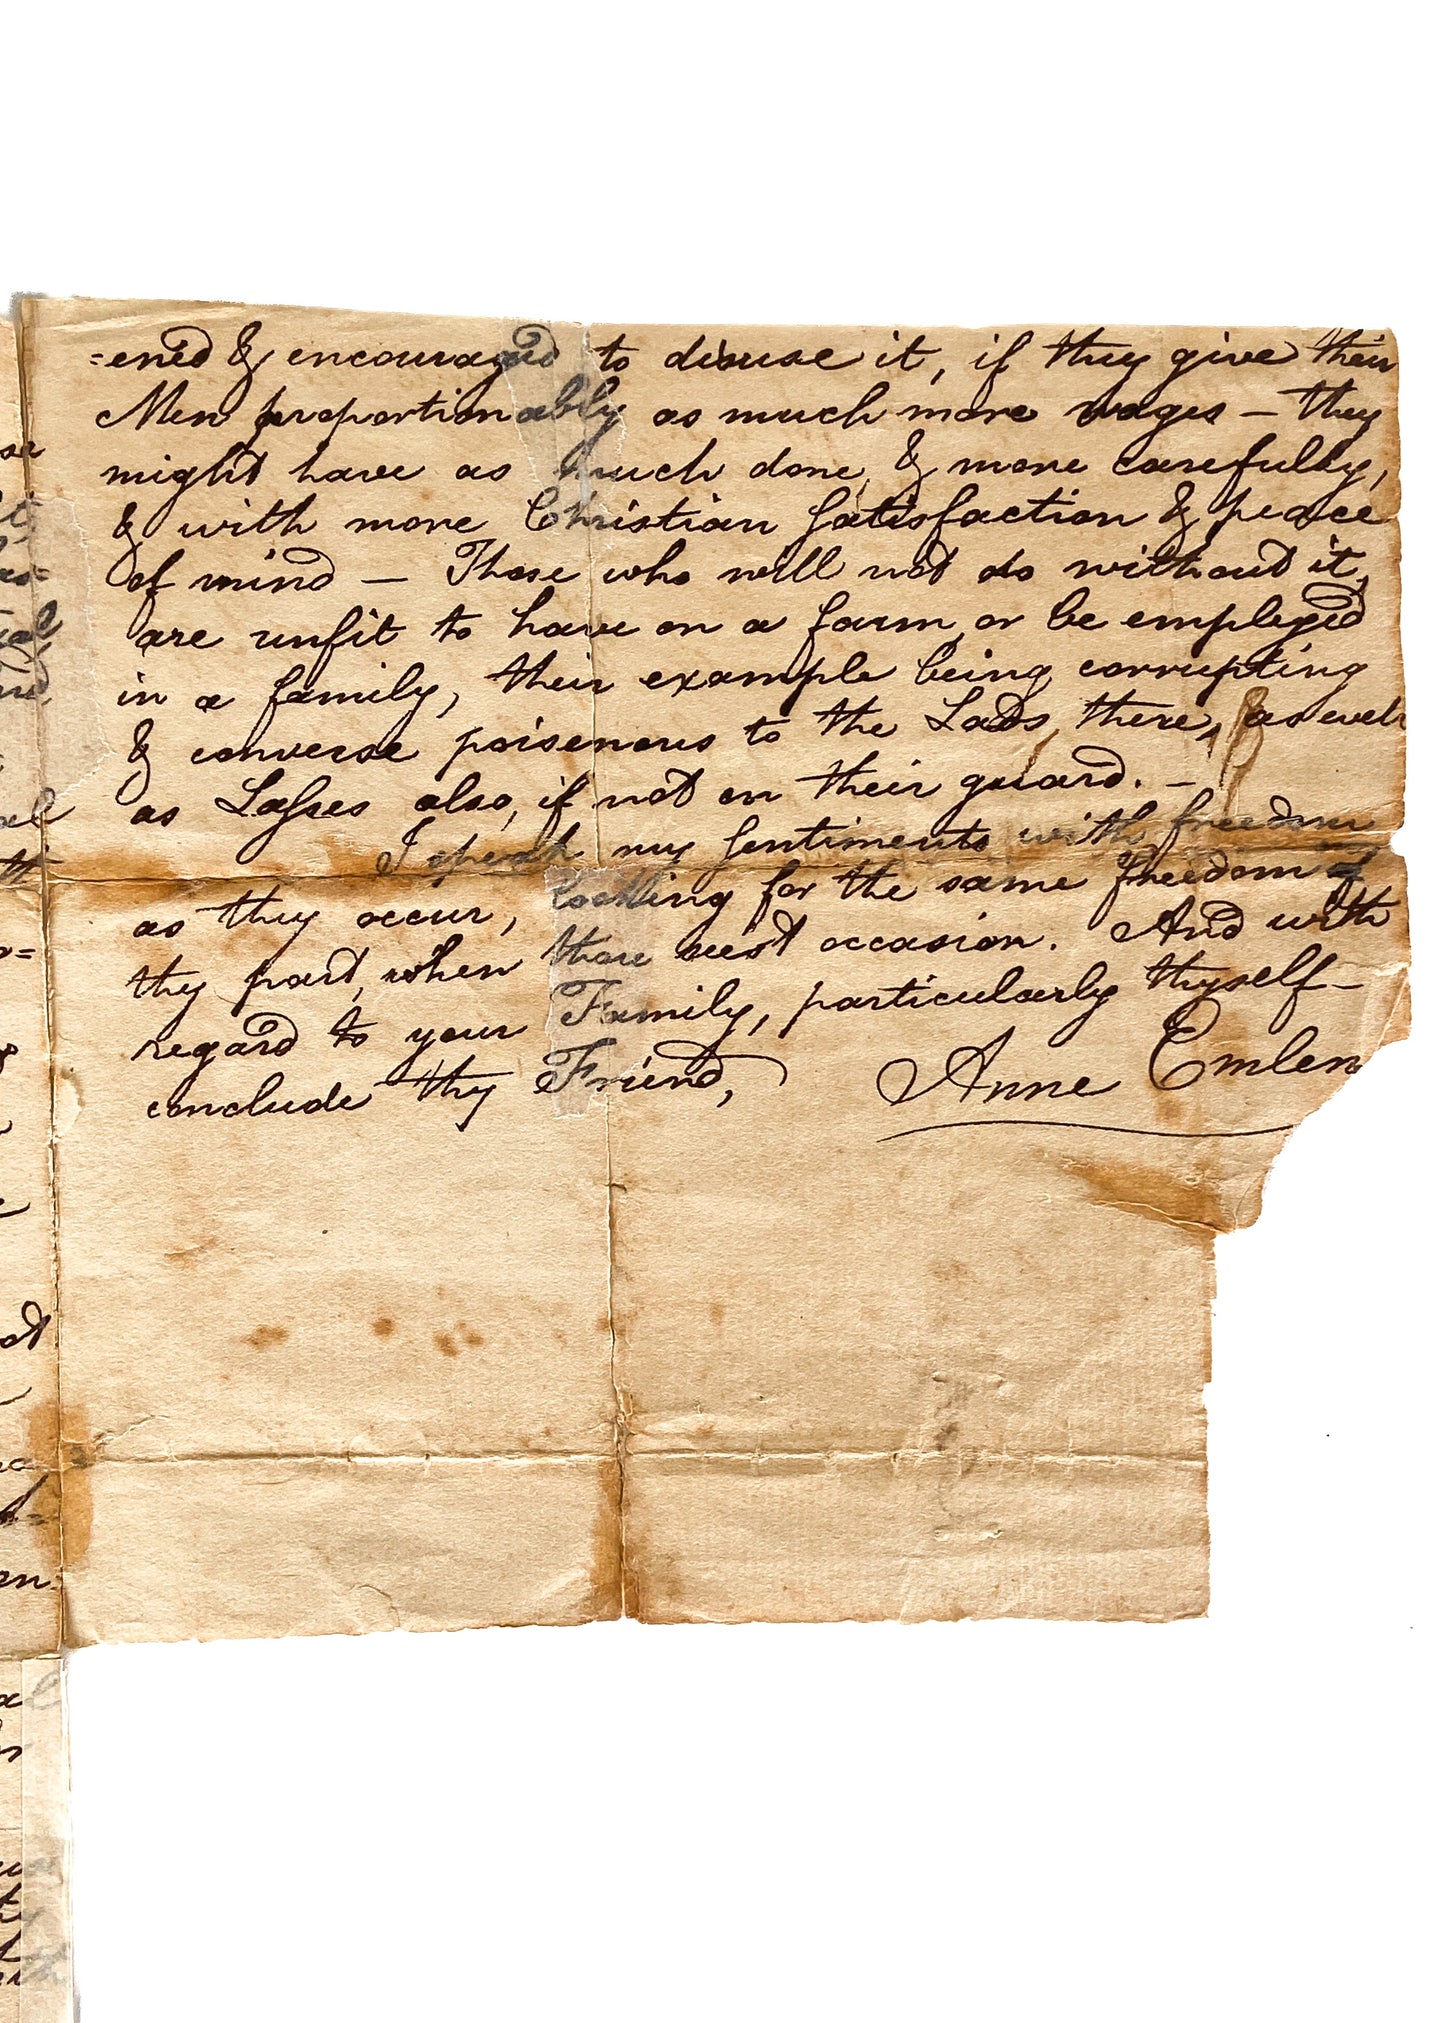 =ened & encouraged to disuse it, if they give their
Men proportionably as much more wages — they
might have as much done, & more carefully,
& with more Christian satisfaction & peace
of mind — Those who will not do without it,
are unfit to have on a farm, or be employed
in a family, their example being corrupting
& converse poisenous to the Lads there, as well
as Lasses also, if not on their guard. —
I speak my sentiments with freedom
as they occur, looking for the same freedom of
thy part, when thou seest occasion. And with
regard to your Family, particularly thyself—
conclude thy Friend, Anne Emlen